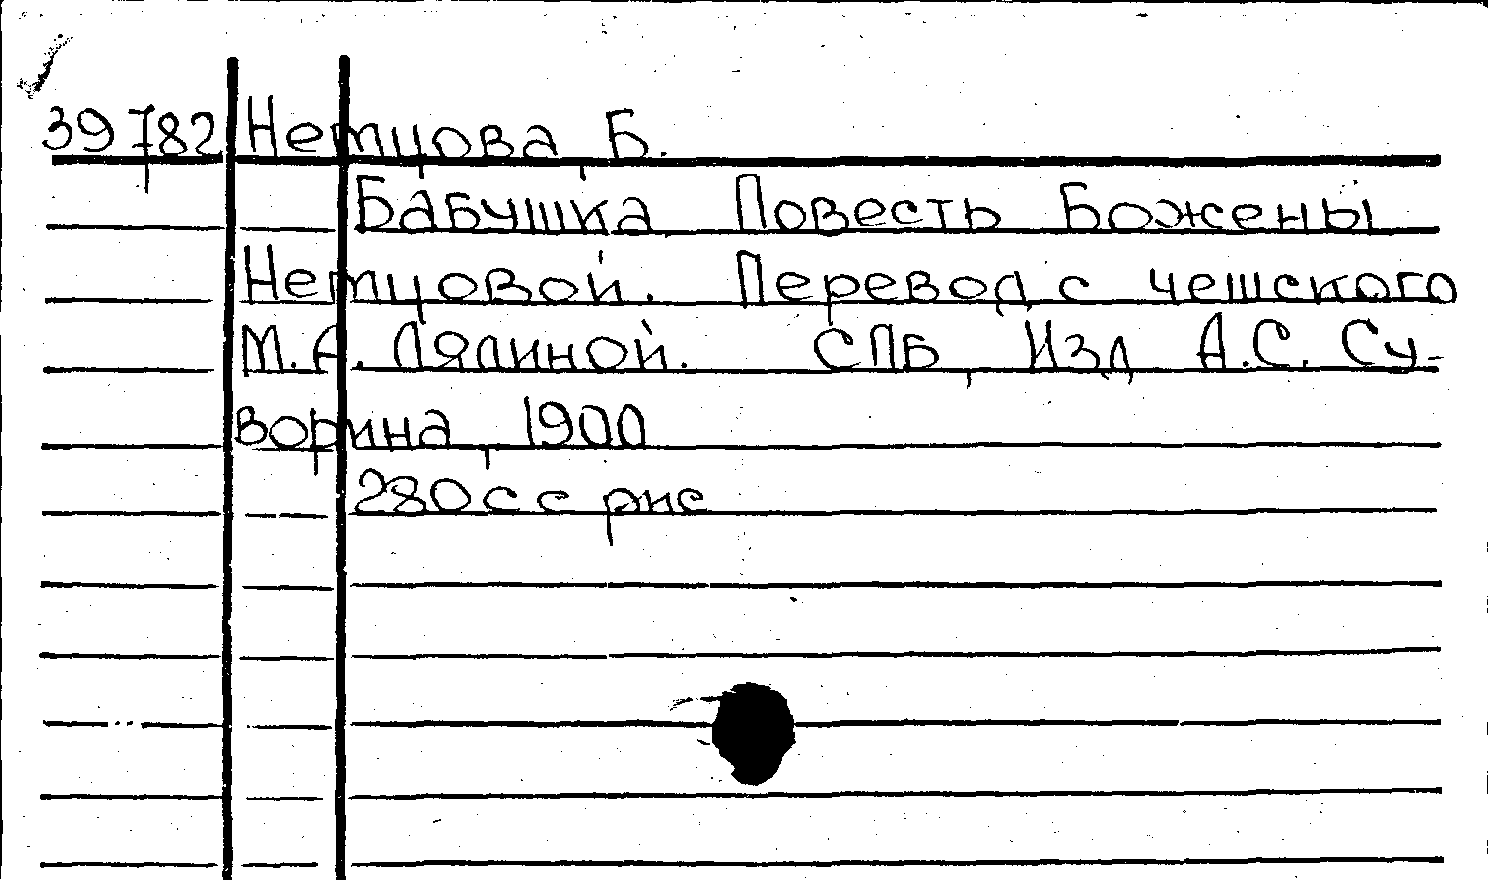 39782 Немцова, Б.
Бабушка Повесть Божены
Немцовой. Перевод с чешского
М.А. Лялиной. СПБ, Изд. А.С. Су-
ворина, 1900
280 с с рис